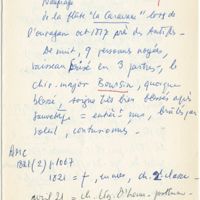 Naufrage
de la flûte "La Caravane" lors de
l'ouragan oct 1817 près des Antilles.
De nuit, 9 personnes noyées,
vaisseau brisé en 3 parties, le
chir. major Boussin, quoique
blessé, soigne très bien blessés après
sauvetage = entièrt nus, brûlés par
soleil, contusionnés.
AMC
1821 (2) p. 1067
1821 = f, mer, ch. 2e classe
avril 21 = ch. Lég. D'honn.